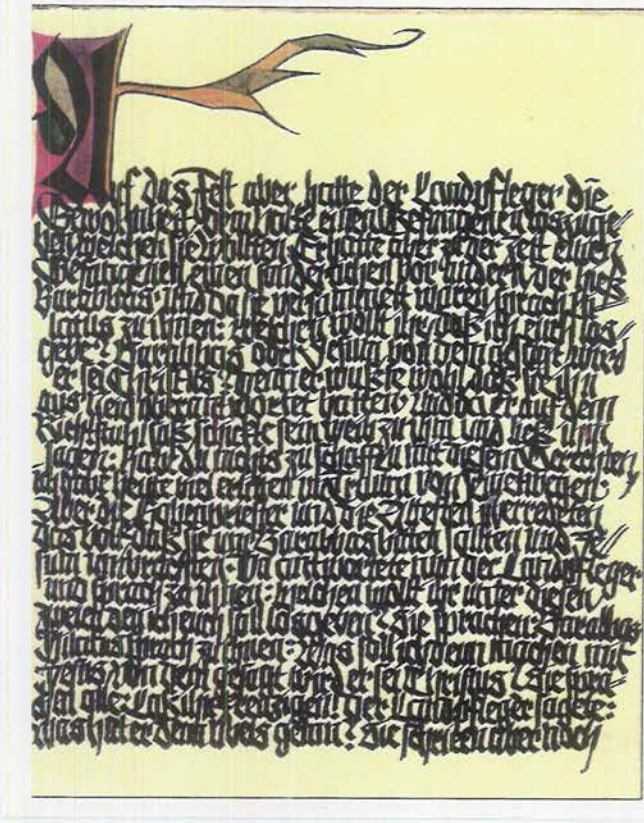 Auf das Fest aber hatte der Landpfleger die
Gewohnheit dem Volk einen Gefangenen loszuge/
ben welchen sie wollten. Er hatte aber zu der Zeit einen
Gefangenen einen sonderlichen vor anderen der hieß
Barabbas. Und da sie versammelt waren sprach Pi/
latus zu ihnen: welchen wollt ihr daß ich euch los/
gebe? Barabbas oder Jesum von dem gesagt wird
er sei Christus? Denn er wußte wohl daß sie ihn
aus Neid überantwortet hatten. Und da er auf dem
Richtstuhl saß schickte sein Weib zu ihm und ließ ihm
sagen: habe du nichts zu schaffen mit diesem Gerechten
ich habe heute viel erlitten im Traum von seinetwegen.
Aber die Hohenpriester und die Ältesten überredeten
das Volk daß sie um Barabbas bitten sollten und Je/
sum umbrächten. Da antwortete nun der Landpfleger
und sprach zu ihnen: welchen wollt ihr unter diesen
zweien den ich euch soll losgeben? Sie sprachen: Barabbas
Pilatus sprach zu ihnen: was soll ich denn machen mit
Jesus von dem gesagt wird er sei Christus? Sie spra
chen alle: Laß ihn kreuzigen! Der Landpfleger sagete:
Was hat er denn Übels getan? Sie schrieen aber noch